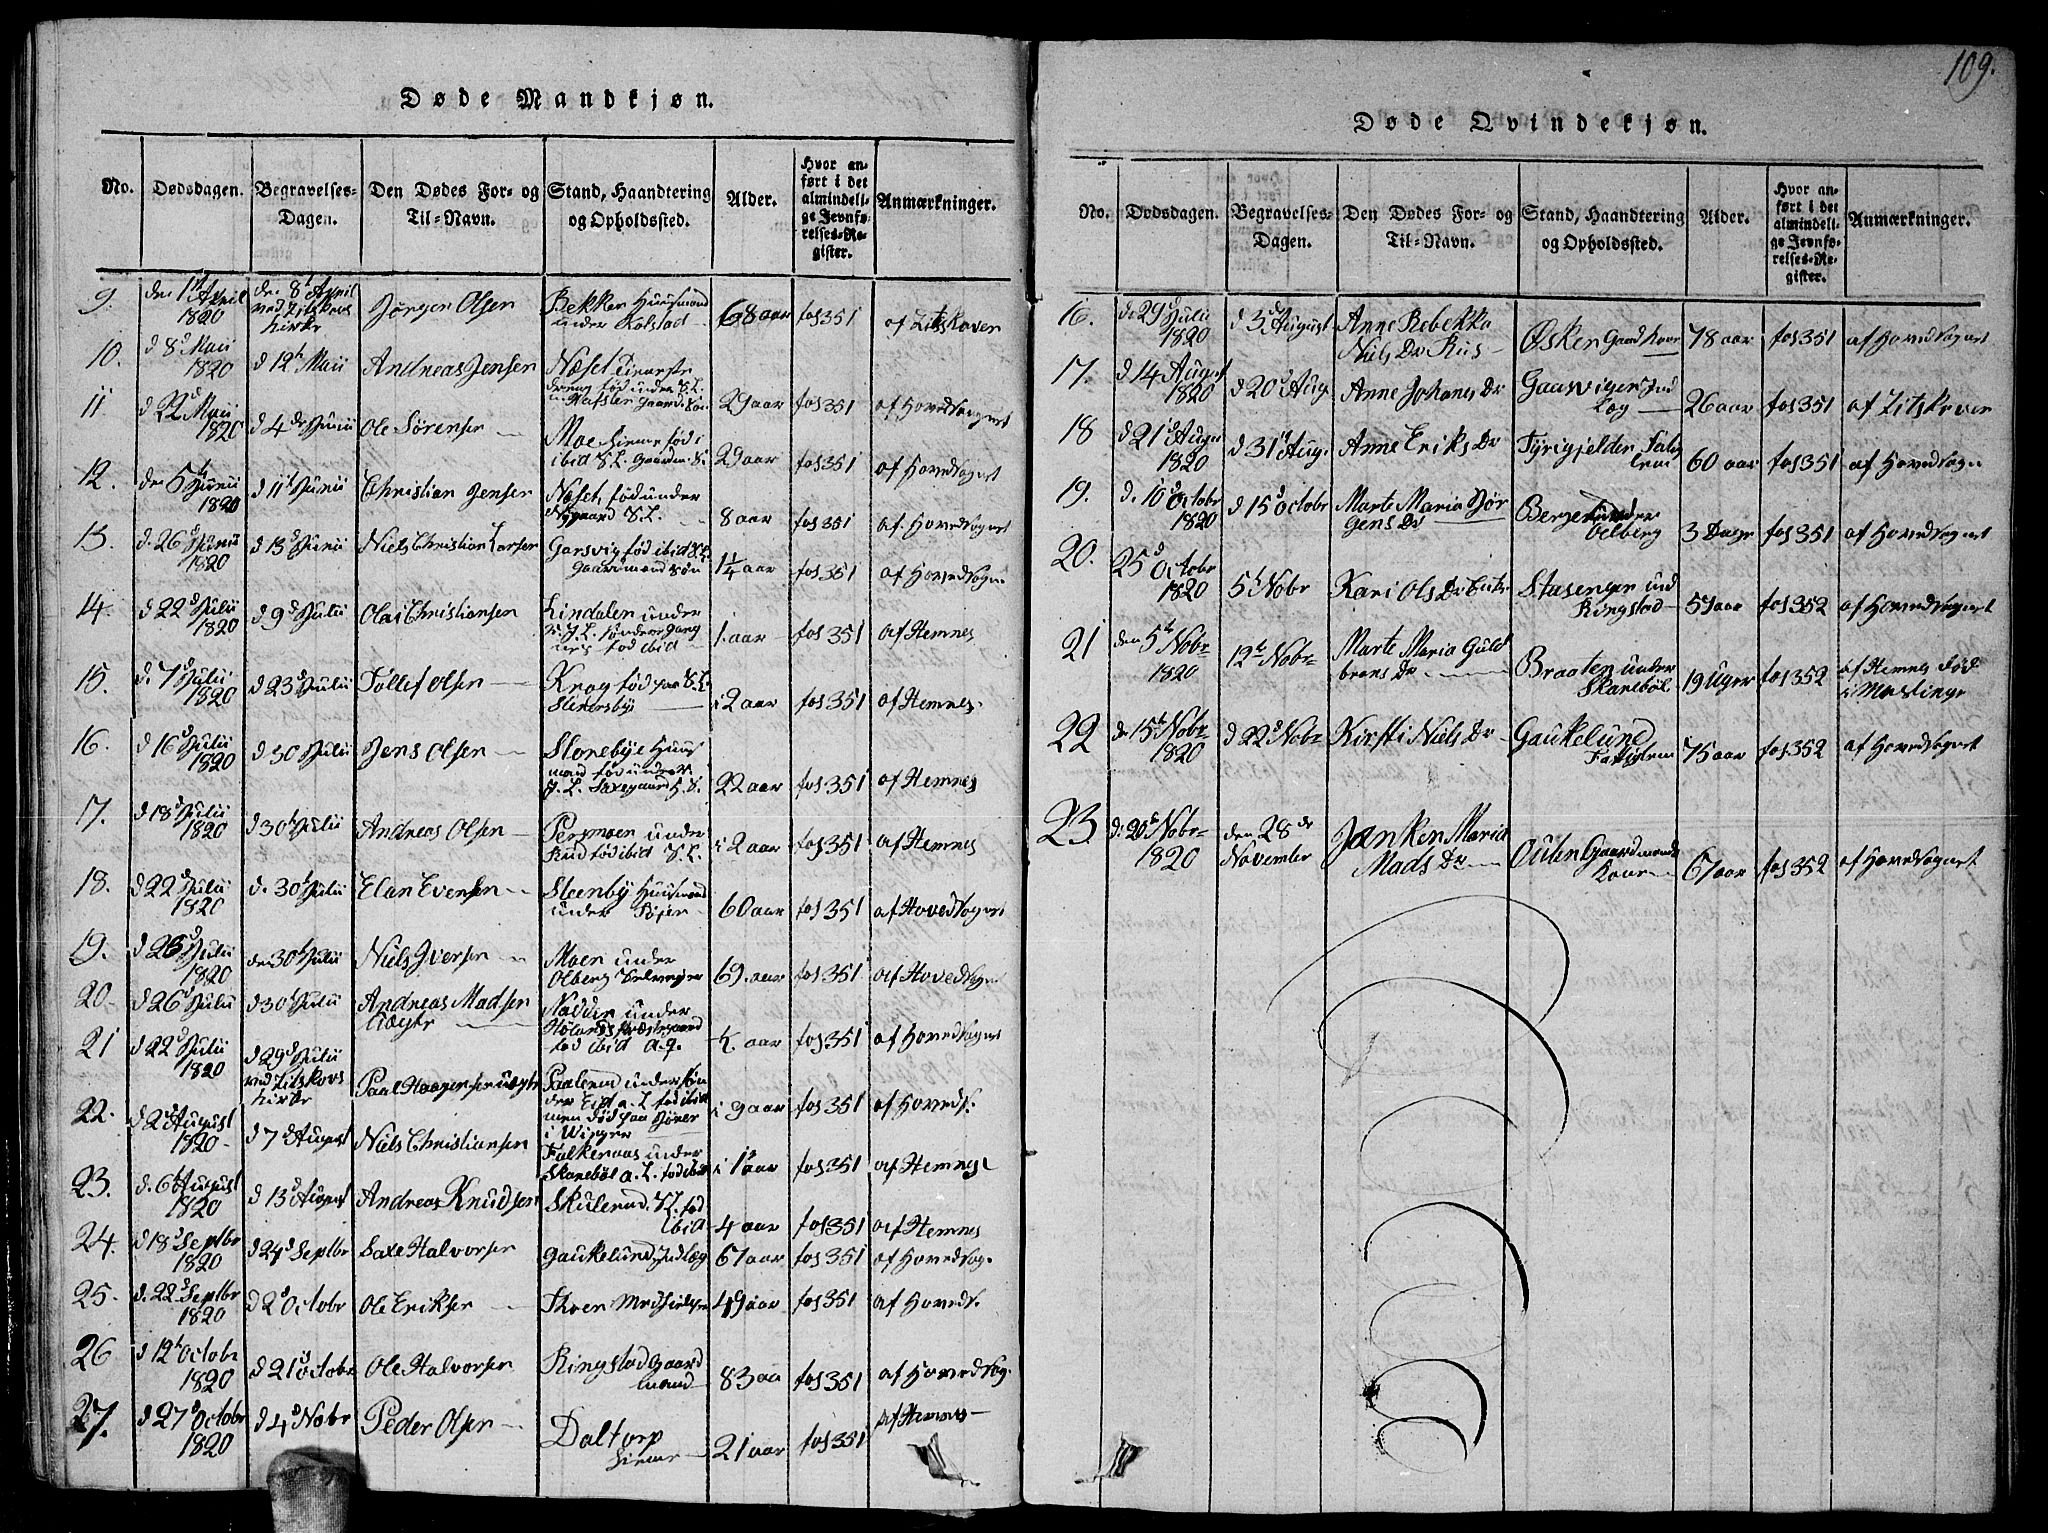 109.
Døde Mandkjøn.
No. Dødsdagen. Begravelses-Dagen. Den Dødes For- og Til-Navn. Stand, Haandtering og Opholdssted. Alder. Hvor anført i det almindelige Jevnførelses-Register. Anmærkninger.
9. den 1st April 1820 den 8d April ved Zitskovs Kirke Jørgen Olsen Bekken Huusmand under Kolstad 68 aar fos 351 af Zitskoven
10. d 8d Maii 1820 d 12t Maii Andreas Jensen Næset Tieneste dreng fød under 29 aar fos 351 af Hovedsognet
11 d 22d Maii 1820 d 4de Junii Ole Sørensen Moe fød i ibid S.L. 29 aar fos 351 af Hovedsognet
12. den 5t Junii 1820 d 11t Junii Christian Jensen Næset, fød under Nygaard S.L. 8 aar fos 351 af Hovedsognet
13. d. 26d Junii 1820 d 13d Junii Niels Christian Larsen Garsvig fød ibid S.L. Gaardmand Søn 1¼ aar fos 351 af Hovedsogne
14. d 22d Julii 1820 d 9d Julii Olai Christiansen Lindalen under fød ibid 1. aar fos 351 af Hemnes
15. d. 7d Julii 1820 d 23d Julii Tollef Olsen Krog fød paa S.L. Slenersbye 2 aar fos 351 af Hemnes.
16. d 16d Julii 1820 d 30 Julii Jens Olsen Slorebye Huus mand fød under 22 aar fos 351 af Hemnes
17. d 18d Julii 1820 d 30t Julii Andreas Olsen Persmoen under Rud fød ibid S.L. 2 aar fos 351 af Hemnes
18. d 22d Julii 1820 d. 30t Julii Elan Evensen Sleenby Huusmand under 60 aar fos 351 af Hovedsognet
19. d 25d Julii 1820 den 30t Julii Niels Iversen Moen under Olberg 69. aar fos 351 af Hovedsogne
20. d 26d Julii 30t Julii Andreas Madsen Uægte Nadden under Hølands Præstegaard fød ibid a.q. aar fos 351 af Hovedsognet
21 d 22d Julii 1820 d 29d Julii ved Zitskovs Kirke Paal Haagensen uægte Paalerud under søndre a.L. fød ibid men død paa i Winger 9 aar fos 351 af Hoveds.
22. d 2d August 1820 d 7d August Niels Christiansen Falkenaas under Skanebøl a.L. fød ibid fos 351 af Hemnes
23. d. 6t August 1820 d 13d August Andreas Knudsen Skulerud S.L. fød ibid 4 aar fos 351 af Hemnes
24. d 18d Septbr 1820 d 24d Septbr Saxe Halvorsen Gaukelund Indlæg 67 aar fos 351 af Hovedsog.
25. d. 22d Septbr 1820 d 2d Octobr Ole Eriksen 49 aar fos 351 af Hoveds.
26 d 12t Octobr 1820 d 21d Octobr Ole Halvorsen Ringstad Gaard mand 83 aa fos 351 af Hovedsog.
27. d 27d Octobr 1820 d 4d Nobr Peder Olsen Daltorp 21 aar fos 351 af Hemnes
Døde Qvindekjøn.
No. Dødsdagen. Begravelses-Dagen. Den Dødes For- og Til-Navn. Stand, Haandtering og Opholdssted. Alder. Hvor anført i det almindelige Jevnførelses-Register. Anmærkninger.
16. d 29d Julii 1820 d 3d August Anne Rebekka Niels Dr Riis Øsken Gaardkone 78 aar fos 351 af Hovedsognet
17. d 14 August 1820 d 20d Aug. Anne Johanes Dr Gaasvigen Ind læg 26 aar fos 351 af Zitskoven
18 d 21d Augu 1820 d 31t Aug. Anne Eriks Dr Tyrigjelder Fatig lem 60 aar fos 351 af Hovedsogne
19. d. 10d Octobr 1820 d 15d Octobr Marte Maria Jør gens Dr Bergerud under Oelberg 3 Dage fos 351 af Hovedsognet
20. 25d Octobr 1820 5t Nobr Kari Ols Dr Enke Stasenger und Ringstad 59 aar fos 352 af Hovedsognet
21 den 5t Nobr 1820 12t Nobr Marte Maria Guld brans Dr Braaten under Skanebøl 19 Uger fos 352 af Hemnes fød i Mastinge
22 den 15t Nobr 1820 d 22d Nobr Kirsti Niels Dr Gaukelund Fattiglem 75 aar fos 352 af Hovedsognet
23 d. 20d Nobr 1820 den 28de November Janken Maria Mads Dr Oulen Gaardmands Kone 67 aar fos 352 af Hovedsognet